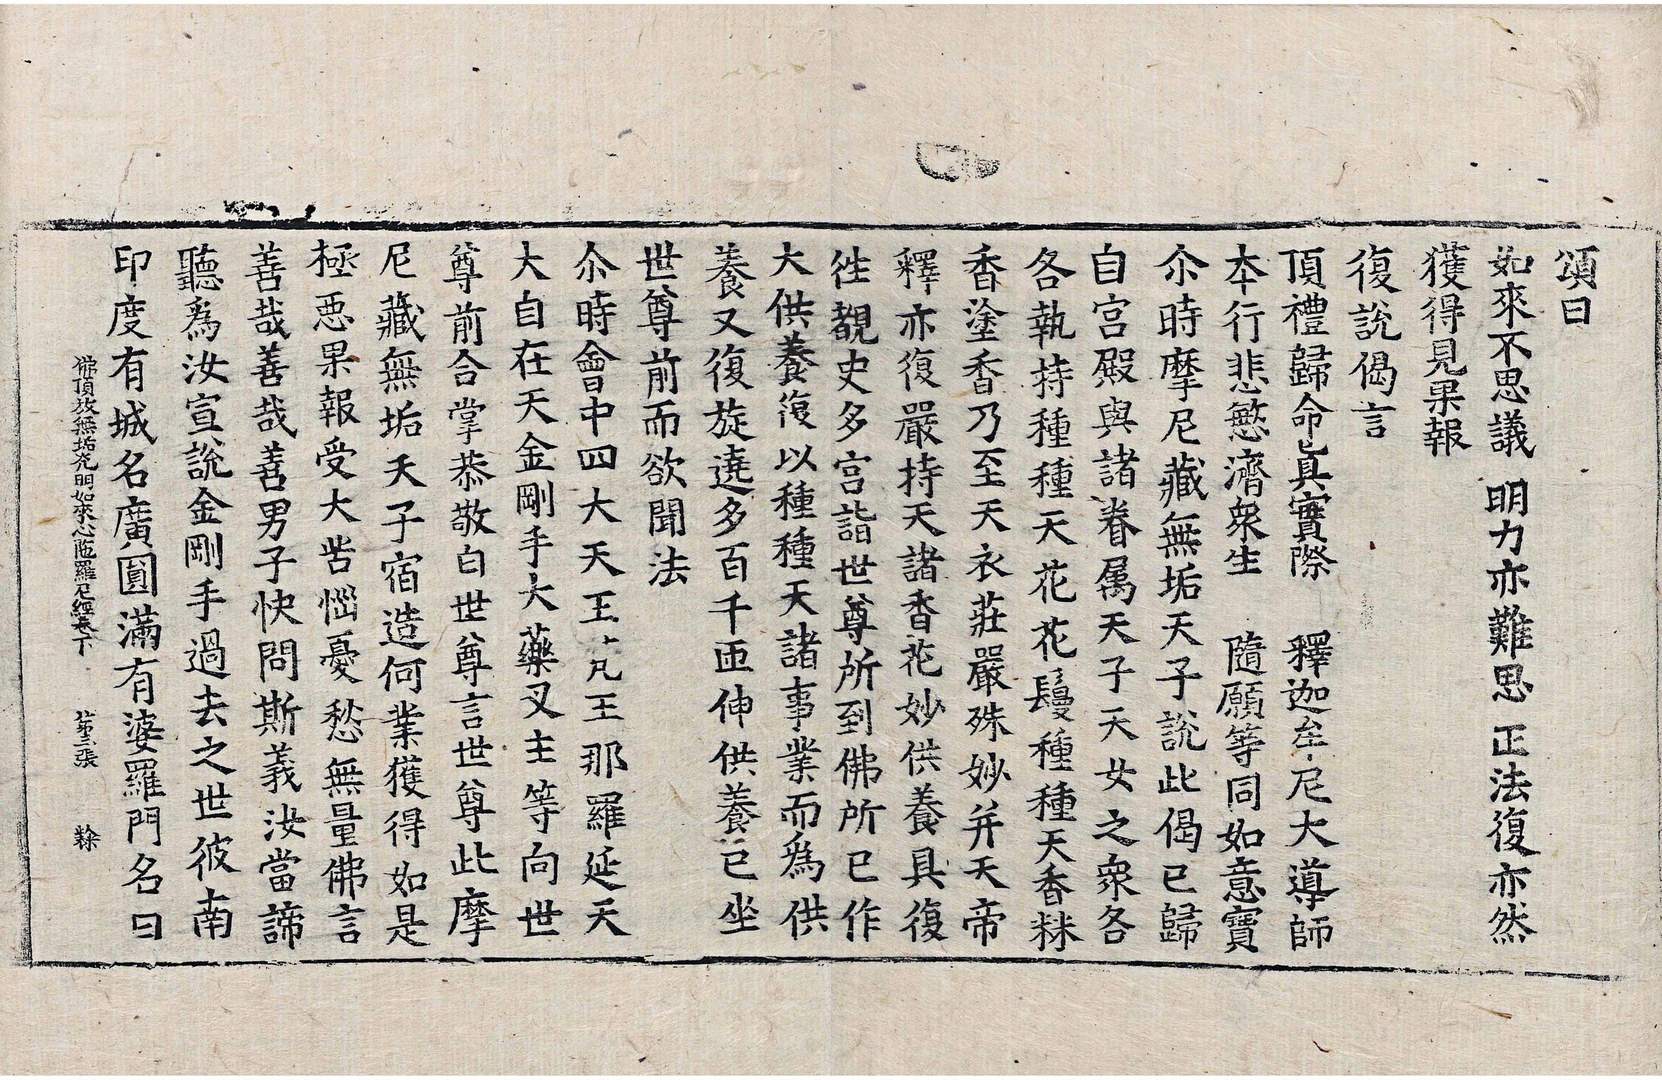 頌曰
如來不思議 明力亦難思 正法復亦然
獲得見果報
復說偈言
頂禮歸命眞實際 釋迦牟尼大導師
本行悲慜濟衆生 隨願等同如意寶
尒時摩尼藏無垢天子說此偈已歸
自宮殿與諸眷属天子天女之衆各
各執持種種天花花鬘種種天香粖
香塗香乃至天衣莊嚴殊妙并天帝
釋亦復嚴持天諸香花妙供養具復
徃覩史多宮詣世尊所到佛所已作
大供養復以種種天諸事業而爲供
養又復旋遶多百千匝伸供養已坐
世尊前而欲聞法
尒時會中四大天王大梵王那羅延天
大自在天金剛手大藥叉主等向世
尊前合掌恭敬白世尊言世尊此摩
尼藏無垢天子宿造何業獲得如是
極惡果報受大苦惱憂愁無量佛言
善哉善哉善男子快問斯義汝當諦
聽爲汝宣說金剛手過去之世彼南
印度有城名廣圓滿有婆羅門名曰
佛頂放無垢光明如來心陁羅尼經卷下 第三張